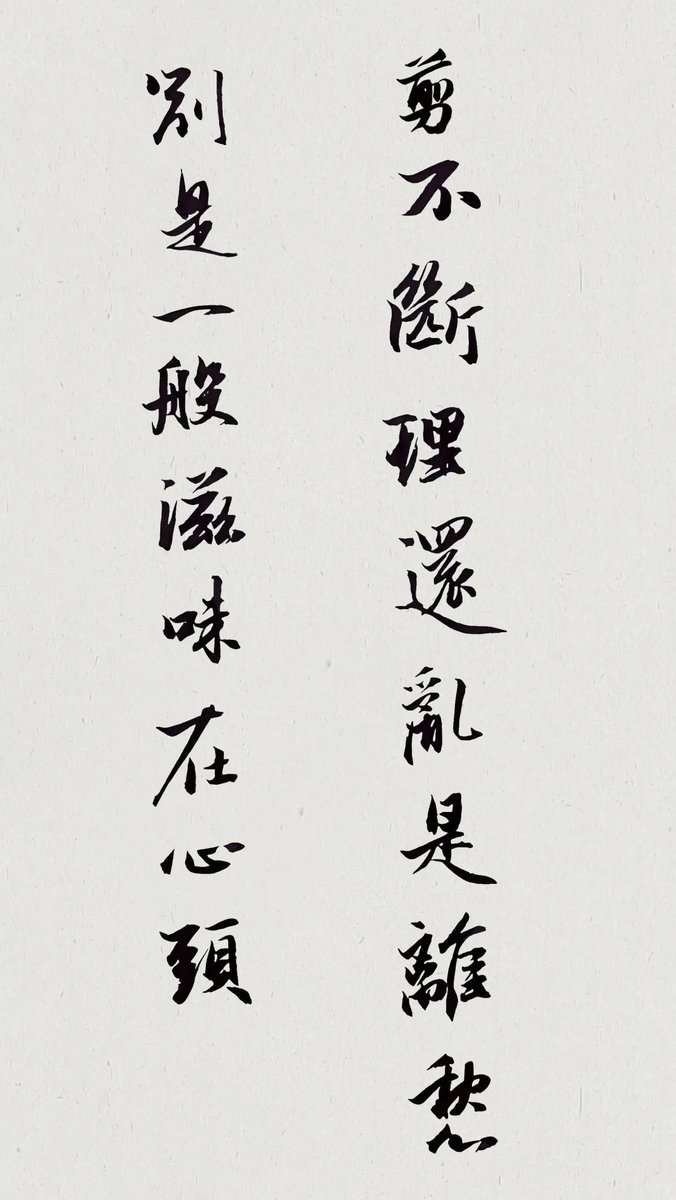 剪不斷理還亂是離愁
別是一般滋味在心頭